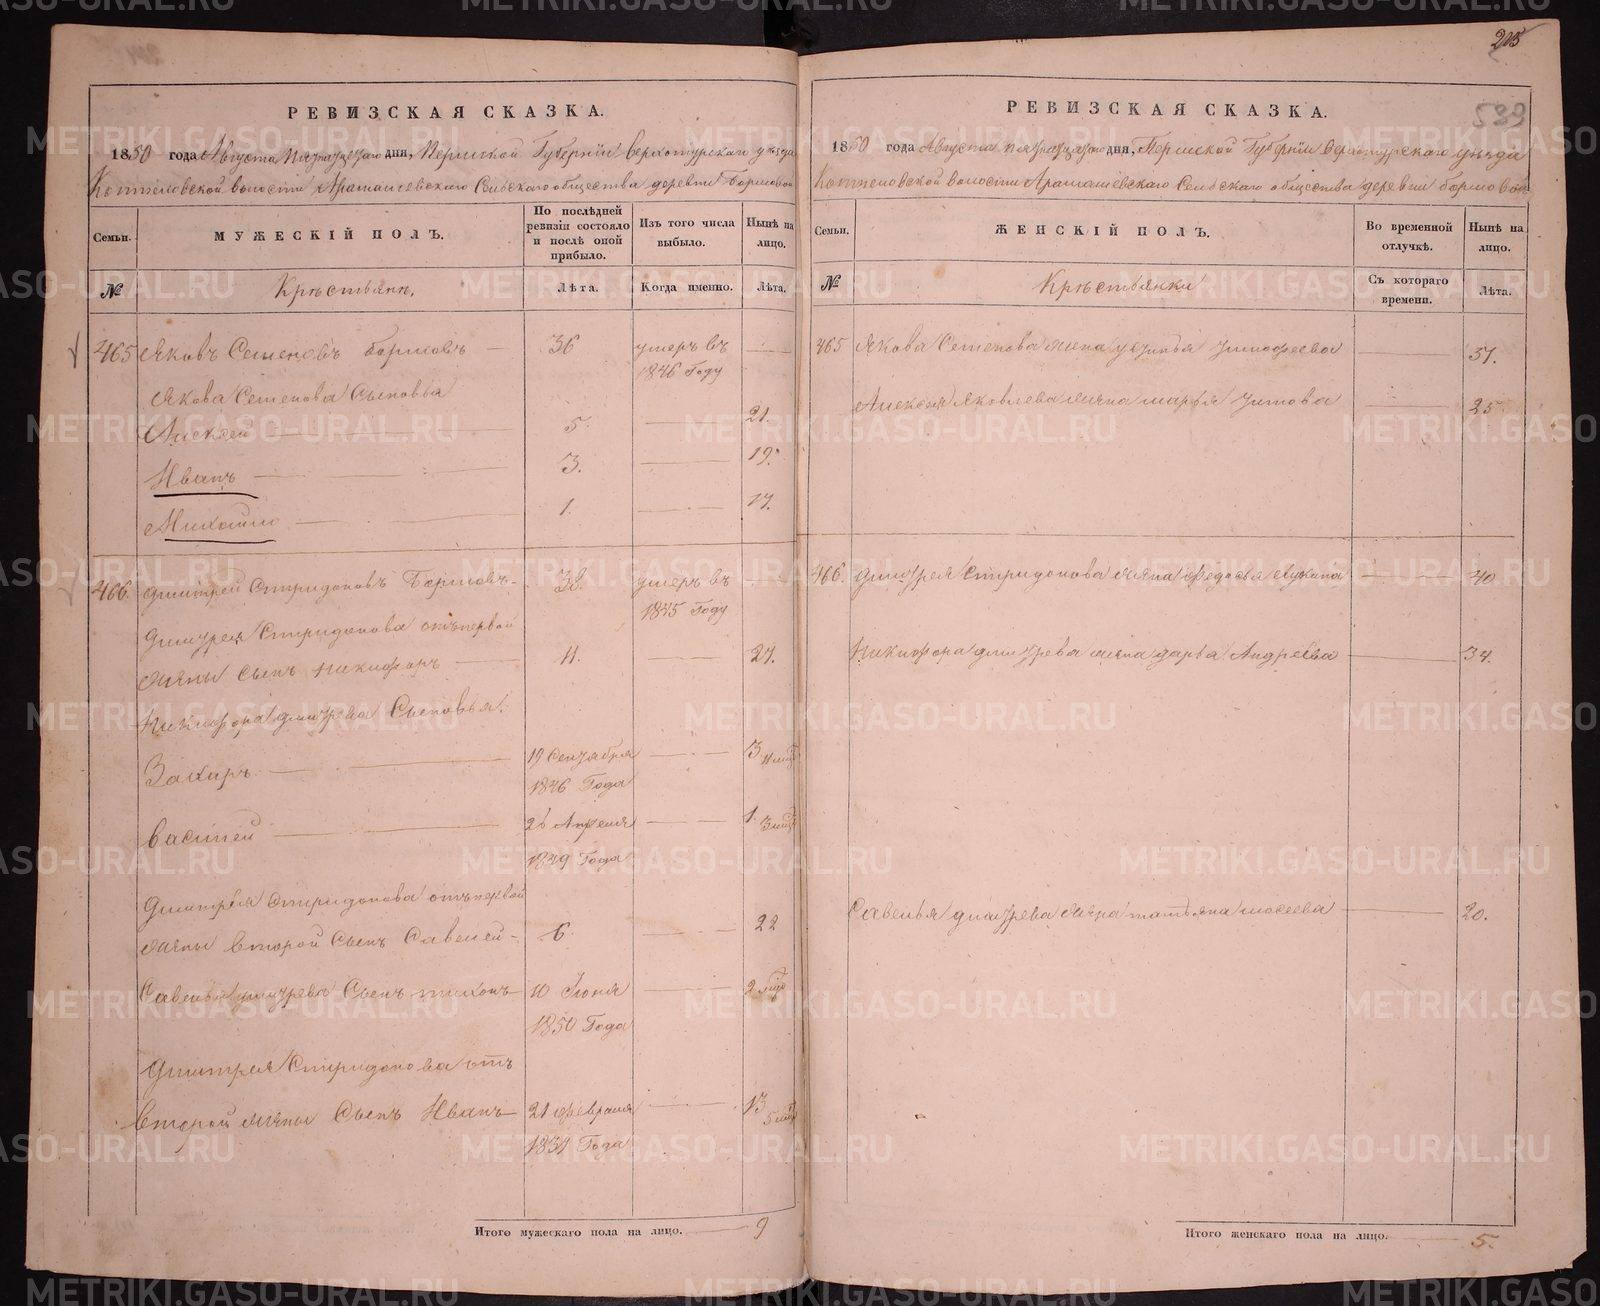 205
539
РЕВИЗСКАЯ СКАЗКА.
1850 года Августа дни, Пермской Губернiи Верхотурскаго уезда
волости Арамашевскаго Сельскаго общества деревни
Семьи.
МУЖЕСКIЙ ПОЛЪ.
По послѣдней ревизiи состояло и послѣ оной прибыло.
Изъ того числа выбыло.
Нынѣ на лицо.
№
Крестьяне.
Лѣта.
Когда именно.
Лѣта.
465 Яковъ Семеновъ 36 умеръ въ
1846 Году
Якова Семенова Сыновья
Алексей 5. 21.
Иванъ 3. 19.
Михайло 1. 17.
466. Дмитрей Спиридоновъ 38. умеръ въ
1845 Году
Дмитрея Спиридонова отъ первой
жены Сынъ Никифоръ 11. 27.
Никифора Дмитрева Сыновья.
19 Сентября 3
1846 Года
Василей 26 Апреля 1
1849 Года
Дмитрея Спиридонова отъ первой
жены второй Сынъ Савелей 6. 22
Савелья Дмитрева Сынъ Тихонъ 10 Июня 2
1850 Года
Дмитрея Спиридонова отъ
второй жены Сынъ Иванъ 21 февраля 13
1837 Года
Итого мужескаго пола на лицо. 9
РЕВИЗСКАЯ СКАЗКА.
1850 года Августа дни, Пермской Губернiи Верхотурскаго уезда
волости Арамашевскаго Сельскаго общества деревни
Семьи.
ЖЕНСКIЙ ПОЛЪ.
Во временной отлучкѣ.
Нынѣ на лицо.
№
Крестьянки
Съ котораго времени.
Лѣта.
465 Якова Семенова жена Тимофеева
Алексея Яковлева жена Марья Титова 25.
466. Дмитрея Спиридонова жена Федосья 40
Никифора Дмитрева жена Дарья Андреева 34.
Савелья Дмитрева жена Татьяна Мосеева 20.
Итого женскаго пола на лицо. 5.
METRIKI.GASO-URAL.RU